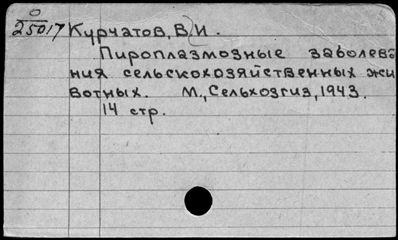 О
25017 Курчатов, В. И.
Пироплазмозные заболева
ния сельскохозяйственных жи
вотных. М., Сельхозгиз, 1943.
14 стр.